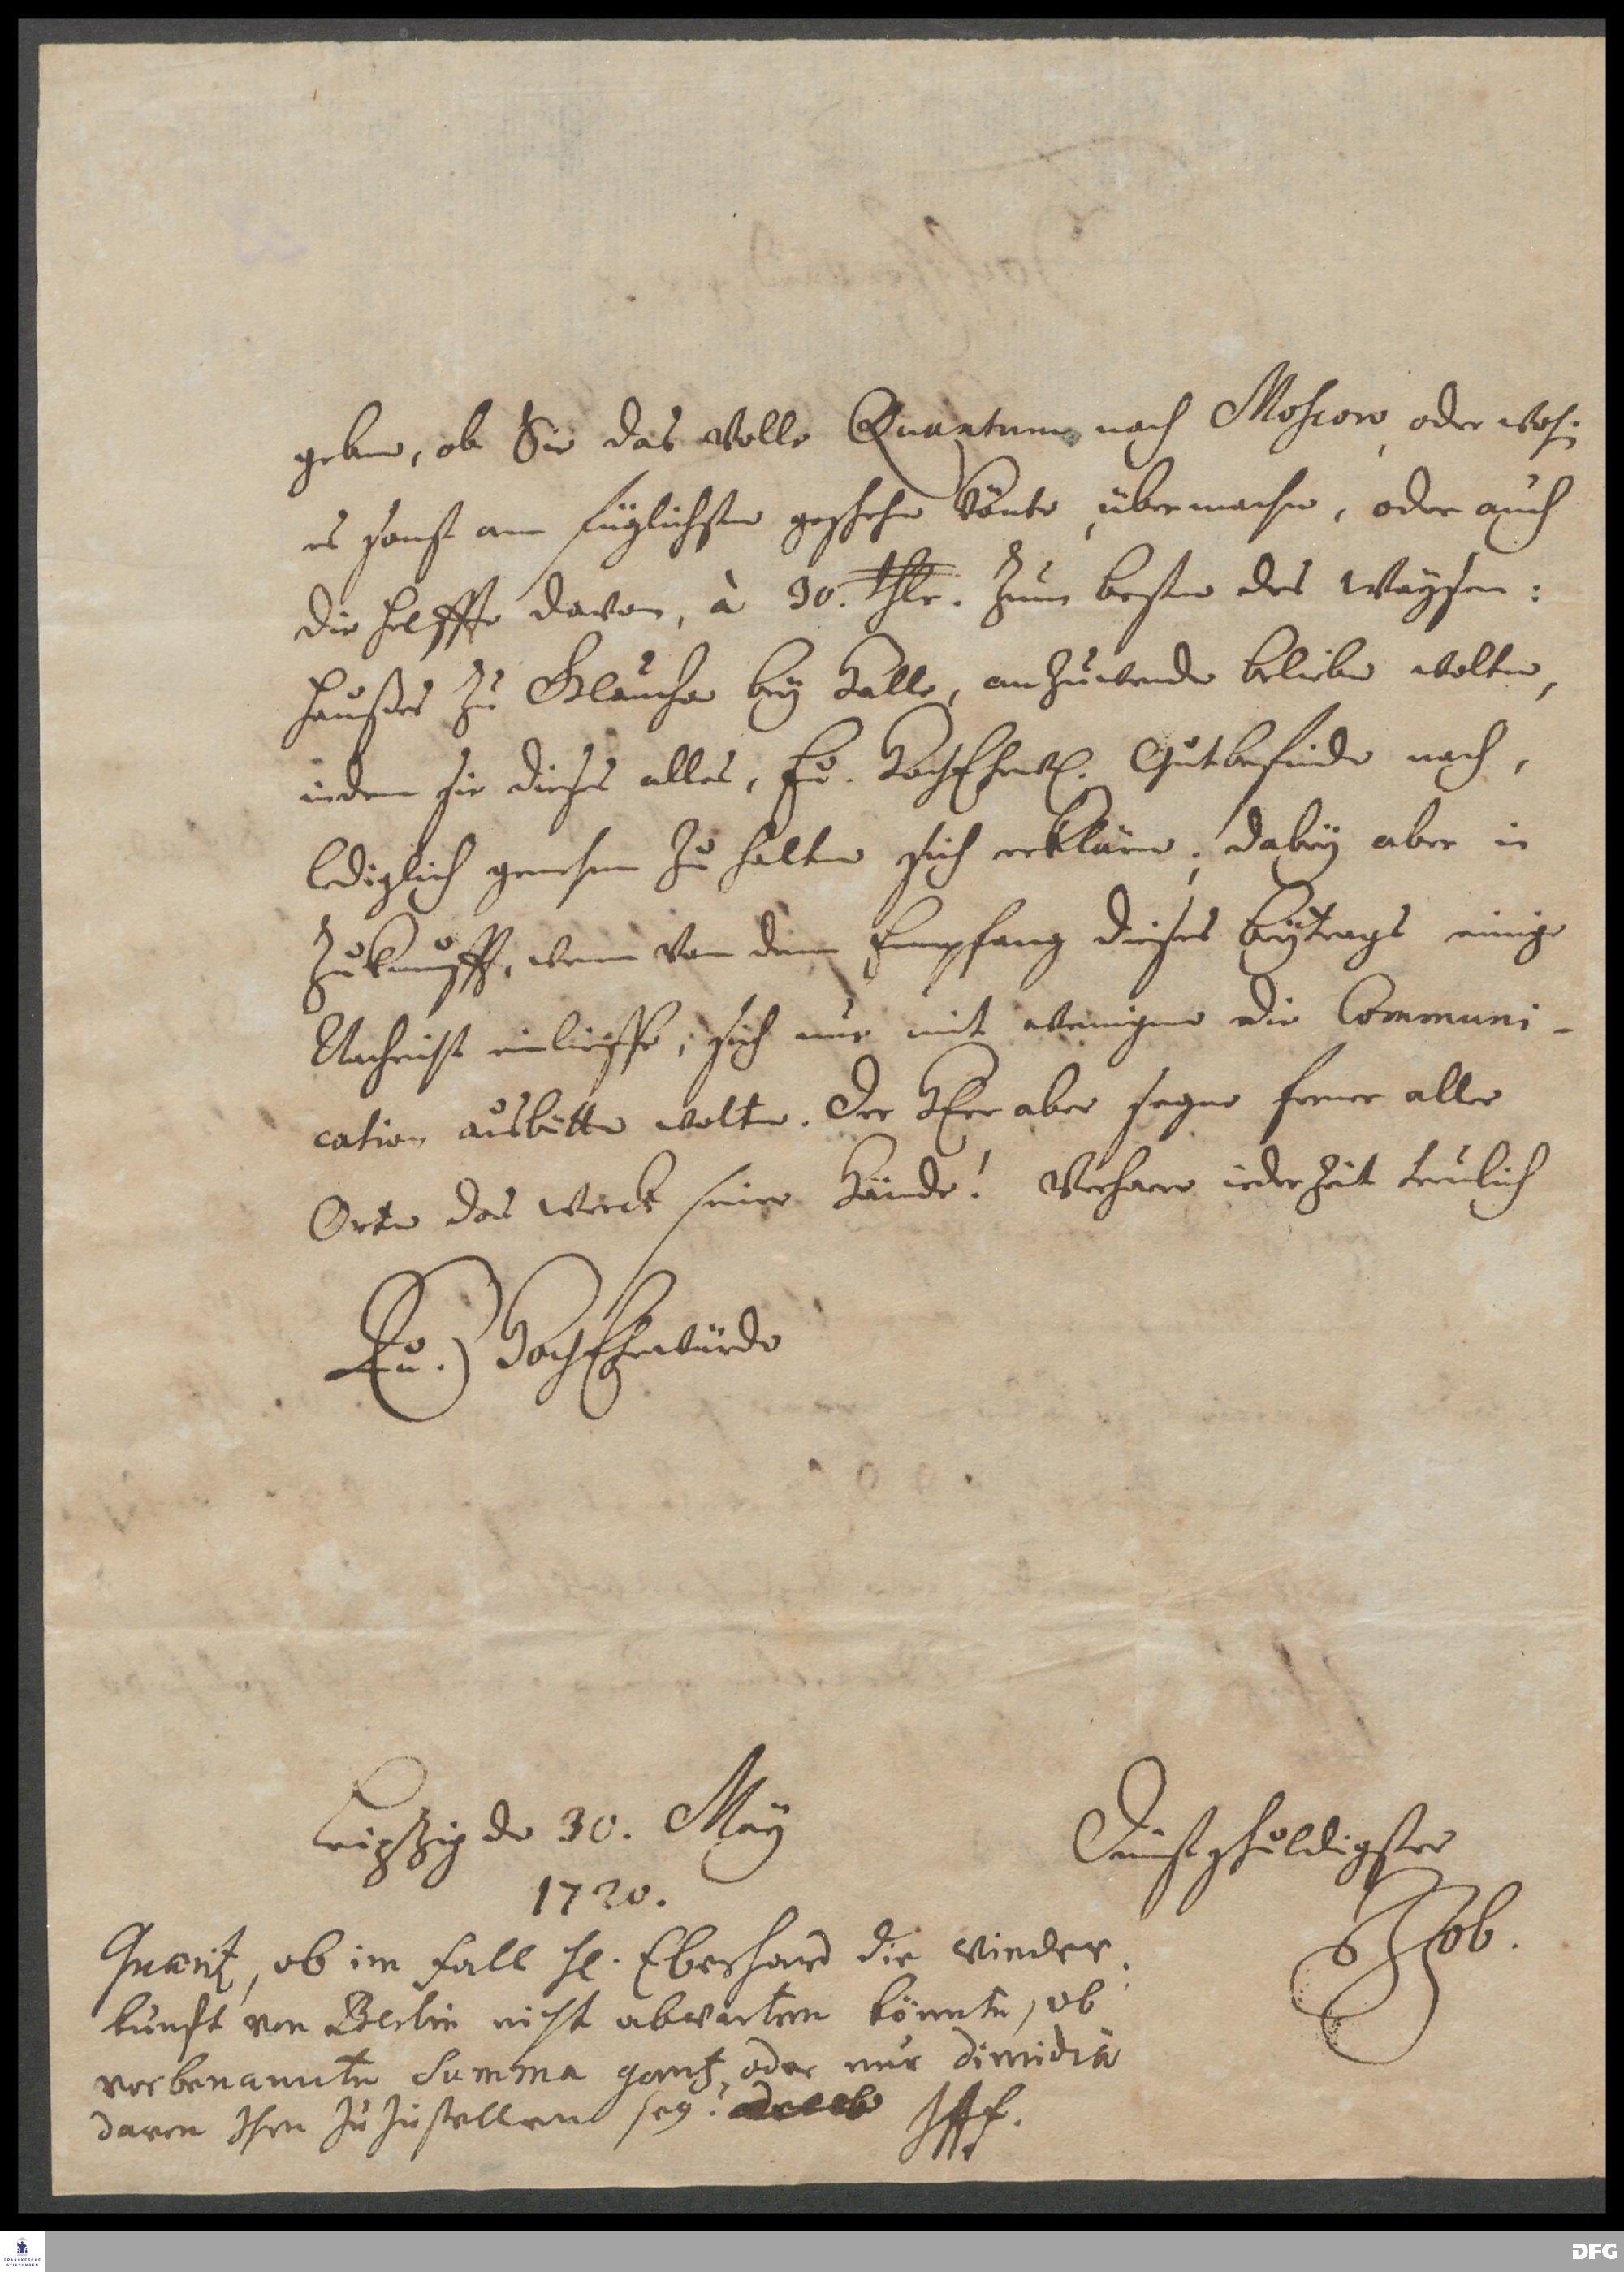 geben, ob Sie das volle Quantum nach Moscow, oder wo
es sonst am füglichsten geschehen könte, übermachen, oder auch
die helffte davon, à 30. thlr. zum besten des Waysen:
haußes zu Glaucha bey Halle, anzuwenden belieben wolten,
indem sie dieses alles, Eu. HochEhrw. Gutbefinden nach,
lediglich genehm zu halten sich erklären; dabey aber in
Zukunfft, wenn von dem Empfang dieses beytrags einige
Nachricht einlieffe, sich nur mit wenigen die Communi-
cation ausbitten wolten. Der HErr aber segne ferner aller
Orten das werck seiner Hände! Verharre iederzeit treulich
Eu. HochEhrwürden
Leipzig den 30. May
1720.
Dienstschuldigster
Job.
Quærit, ob im fall H. Eberhard die wieder
kunfft von Berlin nicht abwarten könnte, ob
vorbenannte Summa gantz, oder nur dimidia
davon Ihm zuzustellen sey?